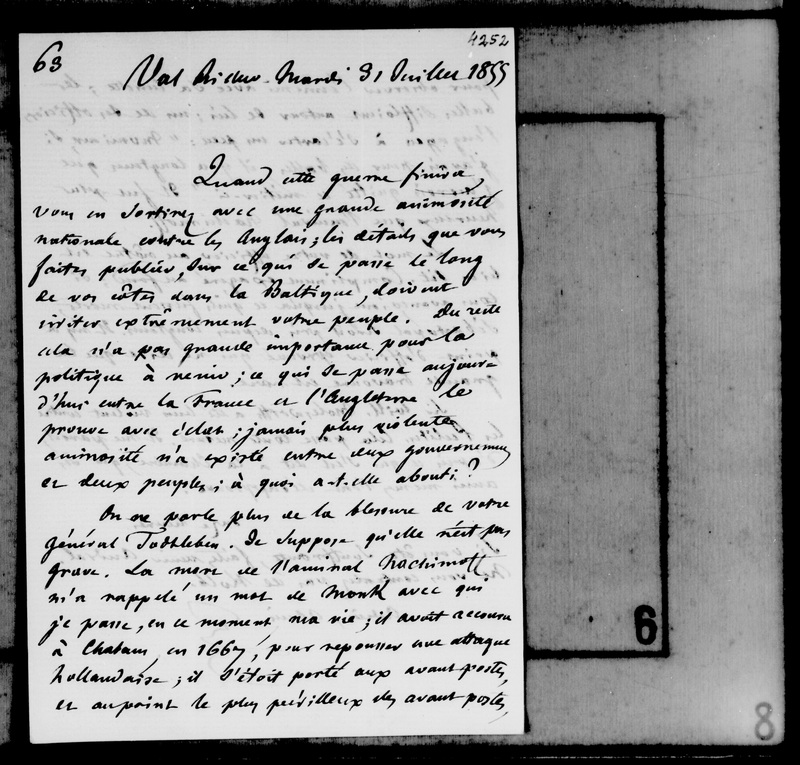 63
4252
Val Richer - Mardi 31 Juillet 1855
Quand cette guerre finira,
vous en sortirez avec une grande animosité
nationale contre les Anglais ; les détails que vous
faites publier, sur ce qui se passe le long
de vos côtes dans la Baltique, doivent
irriter extrêmement votre peuple. Du reste
cela n'a pas grande importance pour la
politique à venir ; ce qui se passe aujour-
d'hui entre la France et l'Angleterre le
prouve avec éclat ; jamais plus violente
animosité n'a existé entre deux gouvernemens
et deux peuples ; à quoi a-t-elle abouti ?
On ne parle plus de la blessure de votre
général Todtleben. Je suppose qu'elle n'est pas
grave. La mort de l'amiral Nachimoff
m'a rappelé un mot de Monk avec qui
je passe, en ce moment, ma vie ; il avait accouru
à Chatam, en 1667, pour repousser une attaque
hollandaise ; il s'étoit porté aux avant postes,
et au point le plus périlleux des avant postes,
6
8